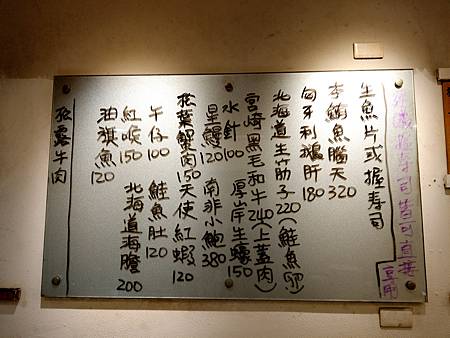 生魚片或握寿司
李鮪魚腦天320
匈牙利鵝肝180
北海道生筋子220(鮭魚卵)
宮崎黑毛和牛240(上蓋肉)
水針100 厚岸生蠔150
星鰻120 南非小鮑380
松葉蟹肉150 天使紅蝦120
午仔100 鮭魚肚120
紅喉150 北海道海膽200
油旗魚120
松露牛肉